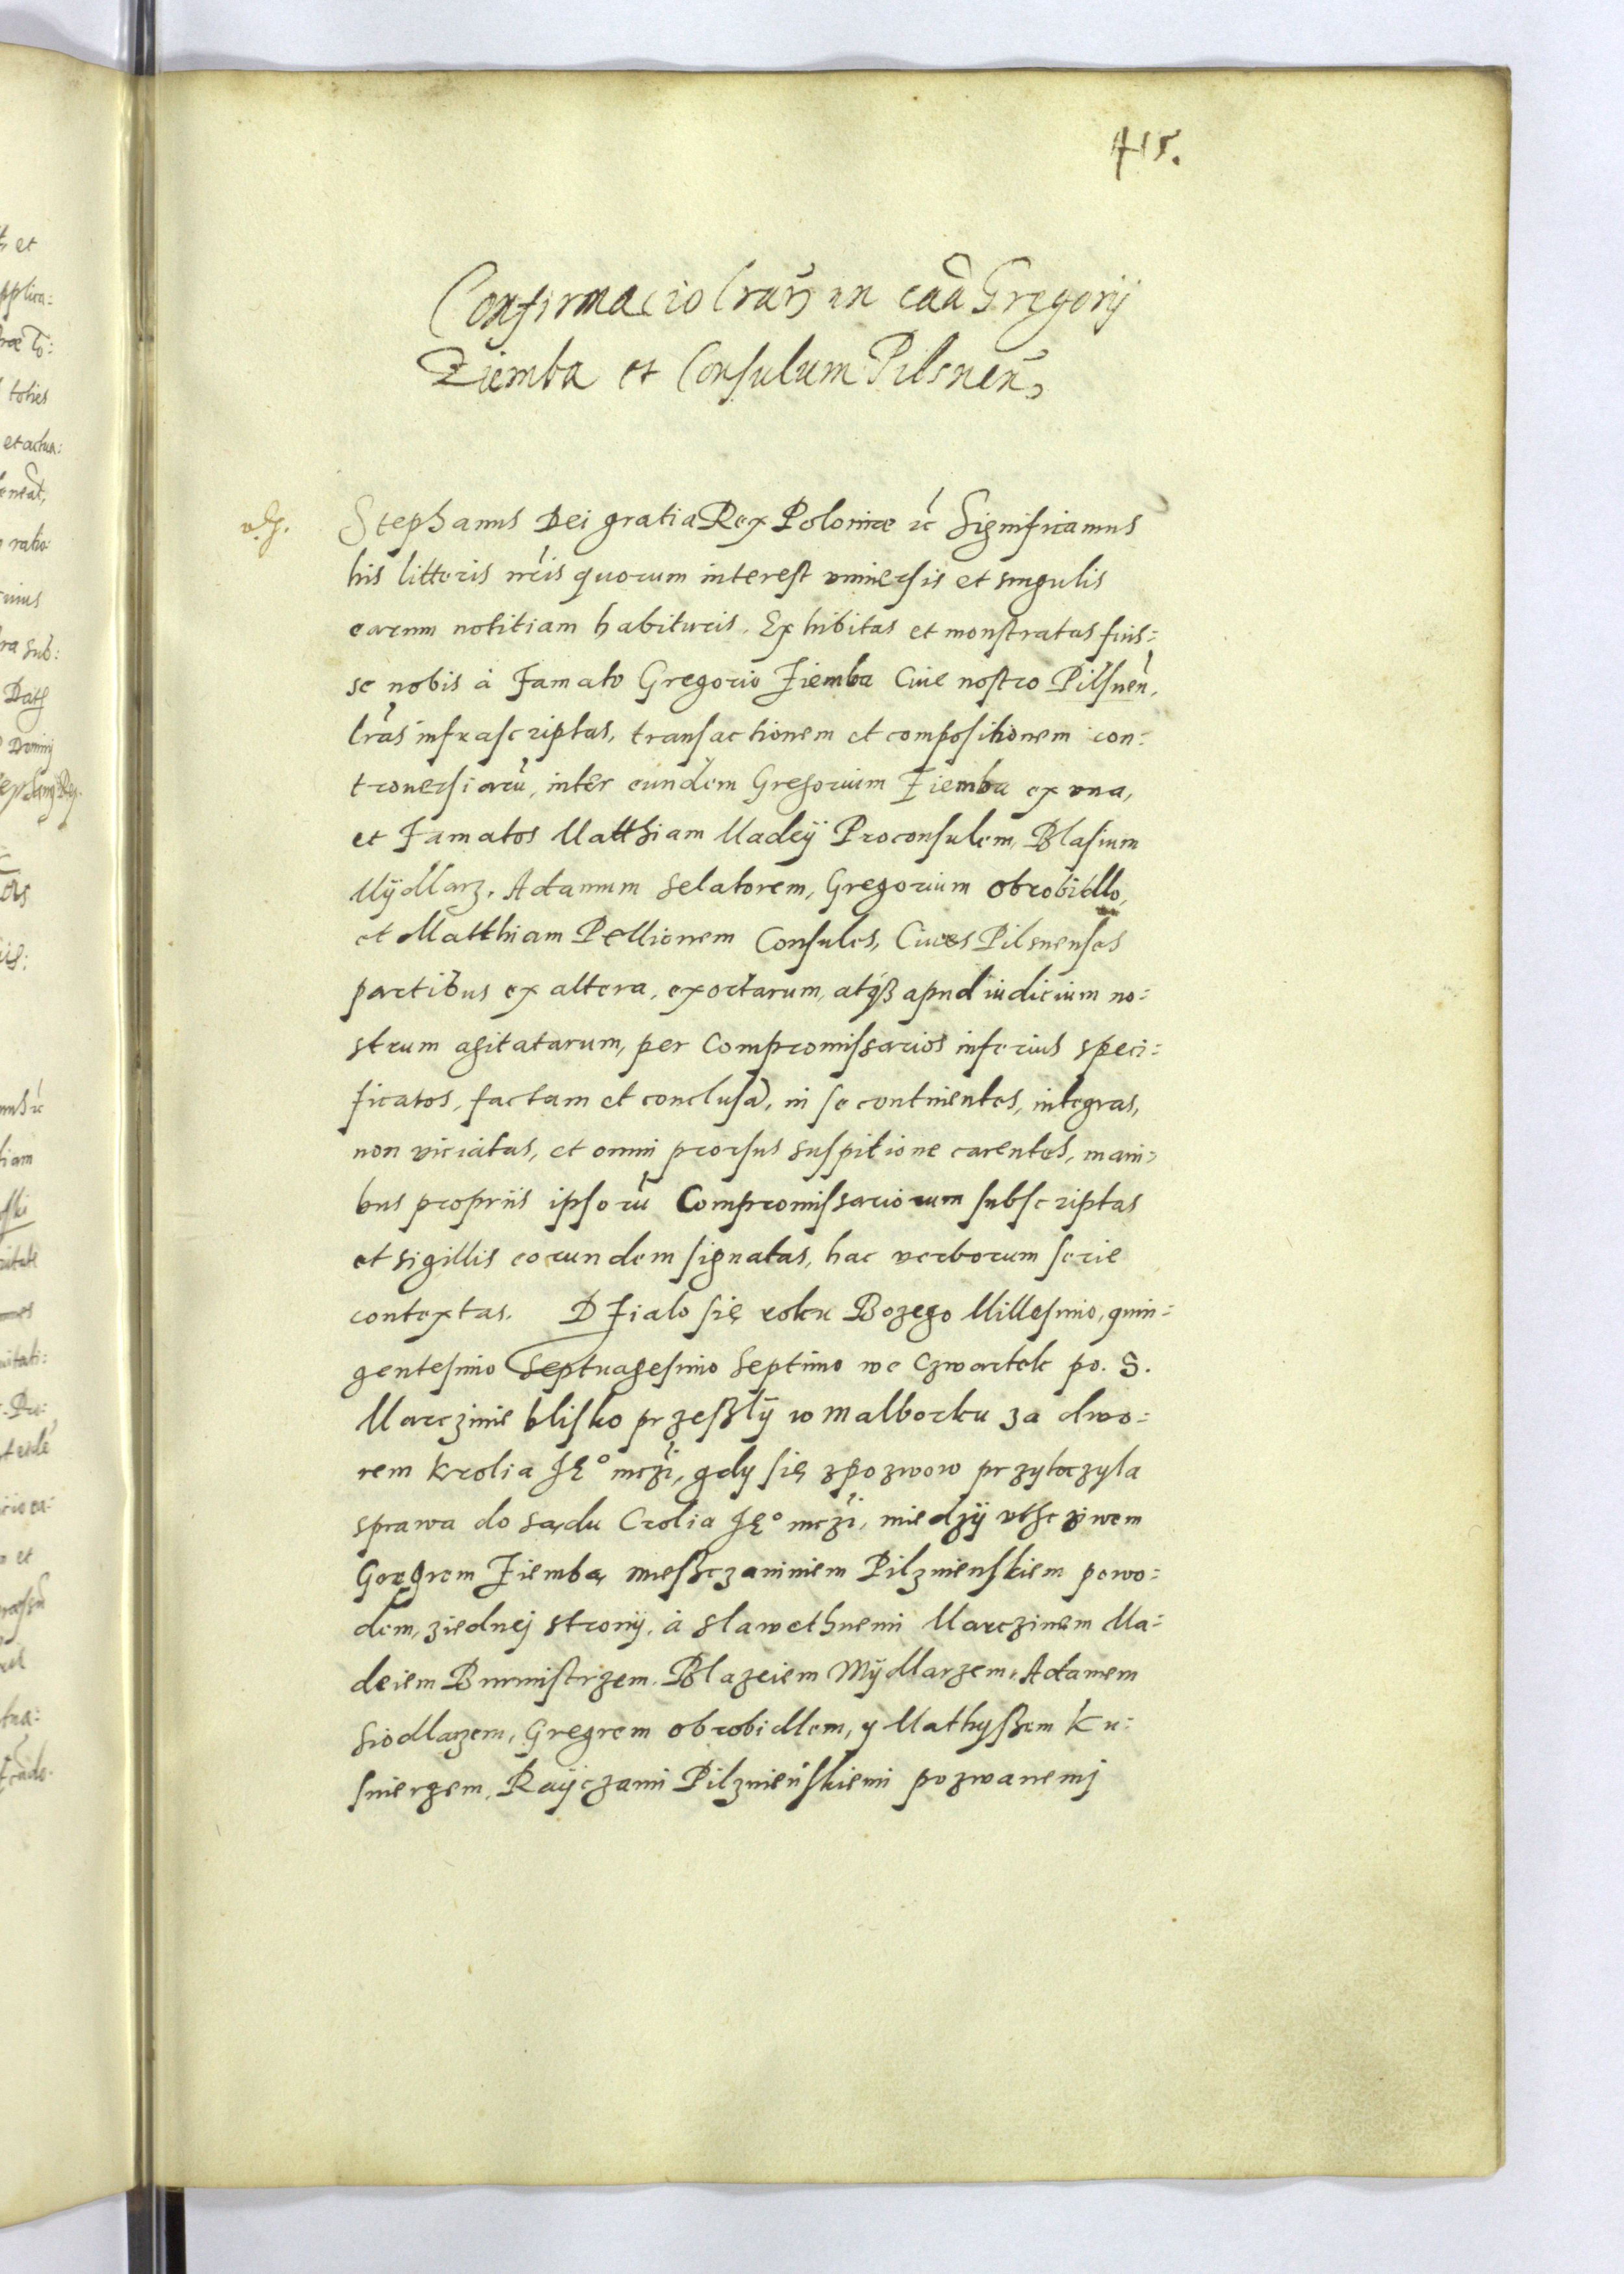 415.
Confirmacio lrarũ in caã Gregorij
Ziemba et Consulum Pilsnen̄,
Stephanus Dei gratia Rex Poloniæ ĩc Significamus
his litteris nr̃is quorum interest vniuersis et singulis
earum notitiam habituris. Exhibitas et monstratas fuis:
se nobis à Famato Gregorio Ziemba Ciue nostro Pilsnen̄,
lrãs infrascriptas, transactionem et compositionem con:
trouersiarũ, inter eundem Gregorium Ziemba ex vna,
et Famatos Matthiam Madeÿ Proconsulem, Blasium
Mÿdllarz, Adamum Selatorem, Gregorium obrobidllo,
et Matthiam Pellionem Consules, Ciues Pilsnenses
partibus ex altera, exortarum, atqß apud iudicium no:
strum agitatarum, per Compromissarios inferius speci:
ficatos, factam et conclusã, in se continentes, integras,
non viciatas, et omni prorsus suspitione carentes, mani:
bus propriis ipsorũ Compromissariorum subscriptas
et sigillis eorundem signatas, hac verborum serie
contextas. DZialo się roku Bozego Millesimo, quin:
gentesimo Septuagesimo Septimo we Czwartek po. S.
Marczinie blisko przeßłÿ w Malborku za dwo:
rem Krolia JE° mczi, gdy się zpozwow przytoczyla
sprawa do sądu Crolia JE° mczi, miedzÿ vthczivem
Gregrem Ziembą mießczaninem Pilznienskiem powo:
dem, ziednej stronÿ, à slawethnemi Marczinem Ma:
deiem Burmistrzem, Blazeiem Mÿdlarzem, Adamem
Siodlarzem, Gregrem obrobidlem, y Mathyßem Ku:
snierzem, Raÿczami Pilznieńskiemi pozwanemj